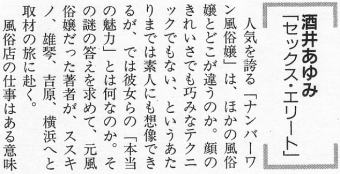 酒井あゆみ
「セックス・エリート」
人気を誇る「ナンバーワ
ン風俗嬢」は、ほかの風俗
嬢とどこが違うのか。顔の
きれいさでも巧みなテクニ
ックでもない、というあた
りまでは素人にも想像でき
るが、では彼女らの「本当
の魅力」とは何なのか。そ
の謎の答えを求めて、元風
俗嬢だった著者が、ススキ
ノ、雄琴、吉原、横浜へと
取材の旅に赴く。
風俗店の仕事はある意味